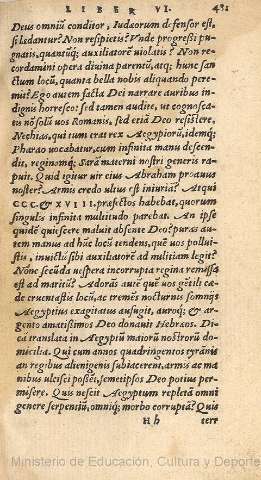 LIBER VI. 481
Deus omniũ conditor, Iudæorum defensor est,
si lædantur? Non respicitis? Vnde progressi pu-
gnatis, quantũq; auxiliatorẽ violatis? Non re-
cordamini opera diuina parentũ, atq; hunc san-
ctum locũ, quanta bella nobis aliquando pere-
mit? Ego autem facta Dei narrare auribus in-
dignis horresco: sed tamen audite, ut cognosca-
tis nõ solũ uos Romanis, sed etiã Deo resistere.
Nechias, qui tum erat rex Aegyptiorũ, idemq;
Pharao vocabatur, cum infinita manu descen-
dit, reginamq; Sarã materni nostri generis ra-
puit. Quid igitur uir eius Abraham proauus
noster? Armis credo ultus est iniuriã? Atqui
CCC. & XVIII. præfectos habebat, quorum
singulis infinita multitudo parebat. An ipse
quidẽ quiescere maluit absente Deo? puras au-
tem manus ad hũc locũ tendens, quẽ uos pollui-
stis, inuictũ sibi auxiliatorẽ ad militiam legit?
Nõne secũda uespera incorrupta regina remissa
est ad maritũ? Adorãs autẽ quẽ uos gẽtili cæ-
de cruentastis locũ, ac tremẽs nocturnis somnijs
Aegyptius exagitatus aufugit, auroq; & ar-
gento amatissimos Deo donauit Hebræos. Di-
cã translata in Aegyptũ maiorũ nostrorũ do-
micilia. Qui cum annos quadringentos tyrãnis
an regibus alienigenis subiacerent, armis ac ma
nibus ulcisci possẽt, semetipsos Deo potius per-
misere. Quis nesciit Aegyptum repletã omni
genere serpentiũ, omniq; morbo corruptã? Quis
Hh terr
Ministerio de Educación, Cultura y Deporte